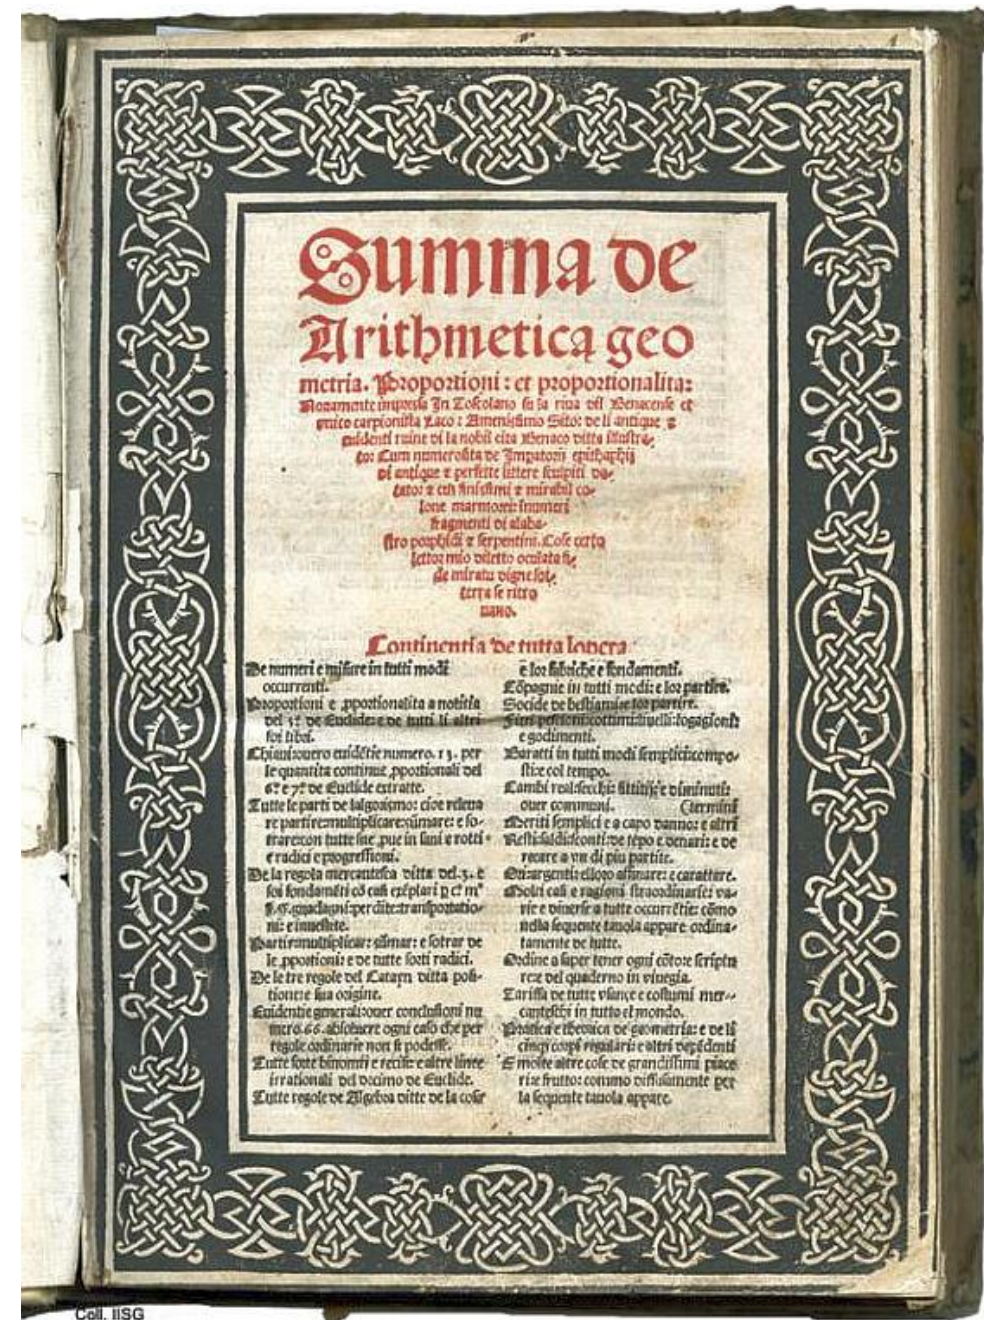 Summa de
Arithmetica geo
metria. Proportioni: et proportionalita:
Nouamente impressa In Toscolano su la riua dil Benacense et
vnico carpionista Laco: Amenissimo Sito: de li antique &
euidenti ruine di la nobil cita Benaco ditta illustra-
to: Cum numerosita de Imperatorij epithaphij
di antique e perfette littere sculpiti do-
tato: e cū finissimi e mirabil co-
lone marmorei: inumeri
fragmenti di alaba-
stro porphidi e serpentini. Cose certo
lettor mio diletto oculata fi-
de miratu digne sot-
terra se ritro
uano.
Continentia de tutta lopera
De numeri e misure in tutti modi
occurrenti.
Proportioni e ꝓportionalita a notitia
del 5º de Euclide: e de tutti li altri
soi libri.
Chiaui: ouero euidētie numero. 13. per
le quantita continue ꝓportionali del
6º e 7º de Euclide extratte.
Tutte le parti de lalgorismo: cioe releua
re partire: multiplicare: sūmare: e so-
trare: con tutte sue ꝓue in sani e rotti
e radici e progressioni.
De la regola mercantesca ditta del. 3. e
soi fondamēti cō casi exēplari
guadagni: perdite: transportatio-
ni: e inuestite.
Partire: multiplicar: sūmar: e sotrar de
le ꝓportioni: e de tutte sorti radici.
De le tre regole del Catayn ditta posi-
tione: e sua origine.
Euidentie generali: ouer conclusioni nu
mero. 66. absoluere ogni caso che per
regole ordinarie non si podesse.
Tutte sorte binomij e recisi: e altre linee
irrationali del decimo de Euclide.
Tutte regole de Algebra ditte de la cosa
e lor fabriche e fondamenti.
Cōpagnie in tutti modi: e lor partire.
Socide de bestiami: e lor partire.
Fitti: pescioni: cottimi: liuelli: logagioni:
e godimenti.
Baratti in tutti modi semplici: compo-
sti: e col tempo.
Cambi reali: secchi: fittitij: e diminuti:
ouer communi.
Meriti semplici e a capo danno: e altri
(termini
Resti: saldi: sconti: de tēpo e denari: e de
recare a vn di piu partite.
Ori: argenti: e lloro affinare: e carattare.
Molti casi e ragioni straordinarie: va-
rie e diuerse a tutte occurrētie: cōmo
nella sequente tauola appare ordina-
tamente de tutte.
Ordine a saper tener ogni cōto: e scriptu
re: e del quaderno in vinegia.
Tariffa de tutte vsançe e costumi mer-
canteschi in tutto el mondo.
Pratica e theorica de geometria: e de li
cinque corpi regulari: e altri depēdenti
E molte altre cose de grandissimi piace
ri: e frutto: commo diffusamente per
la sequente tauola appare.
Coll. IISG